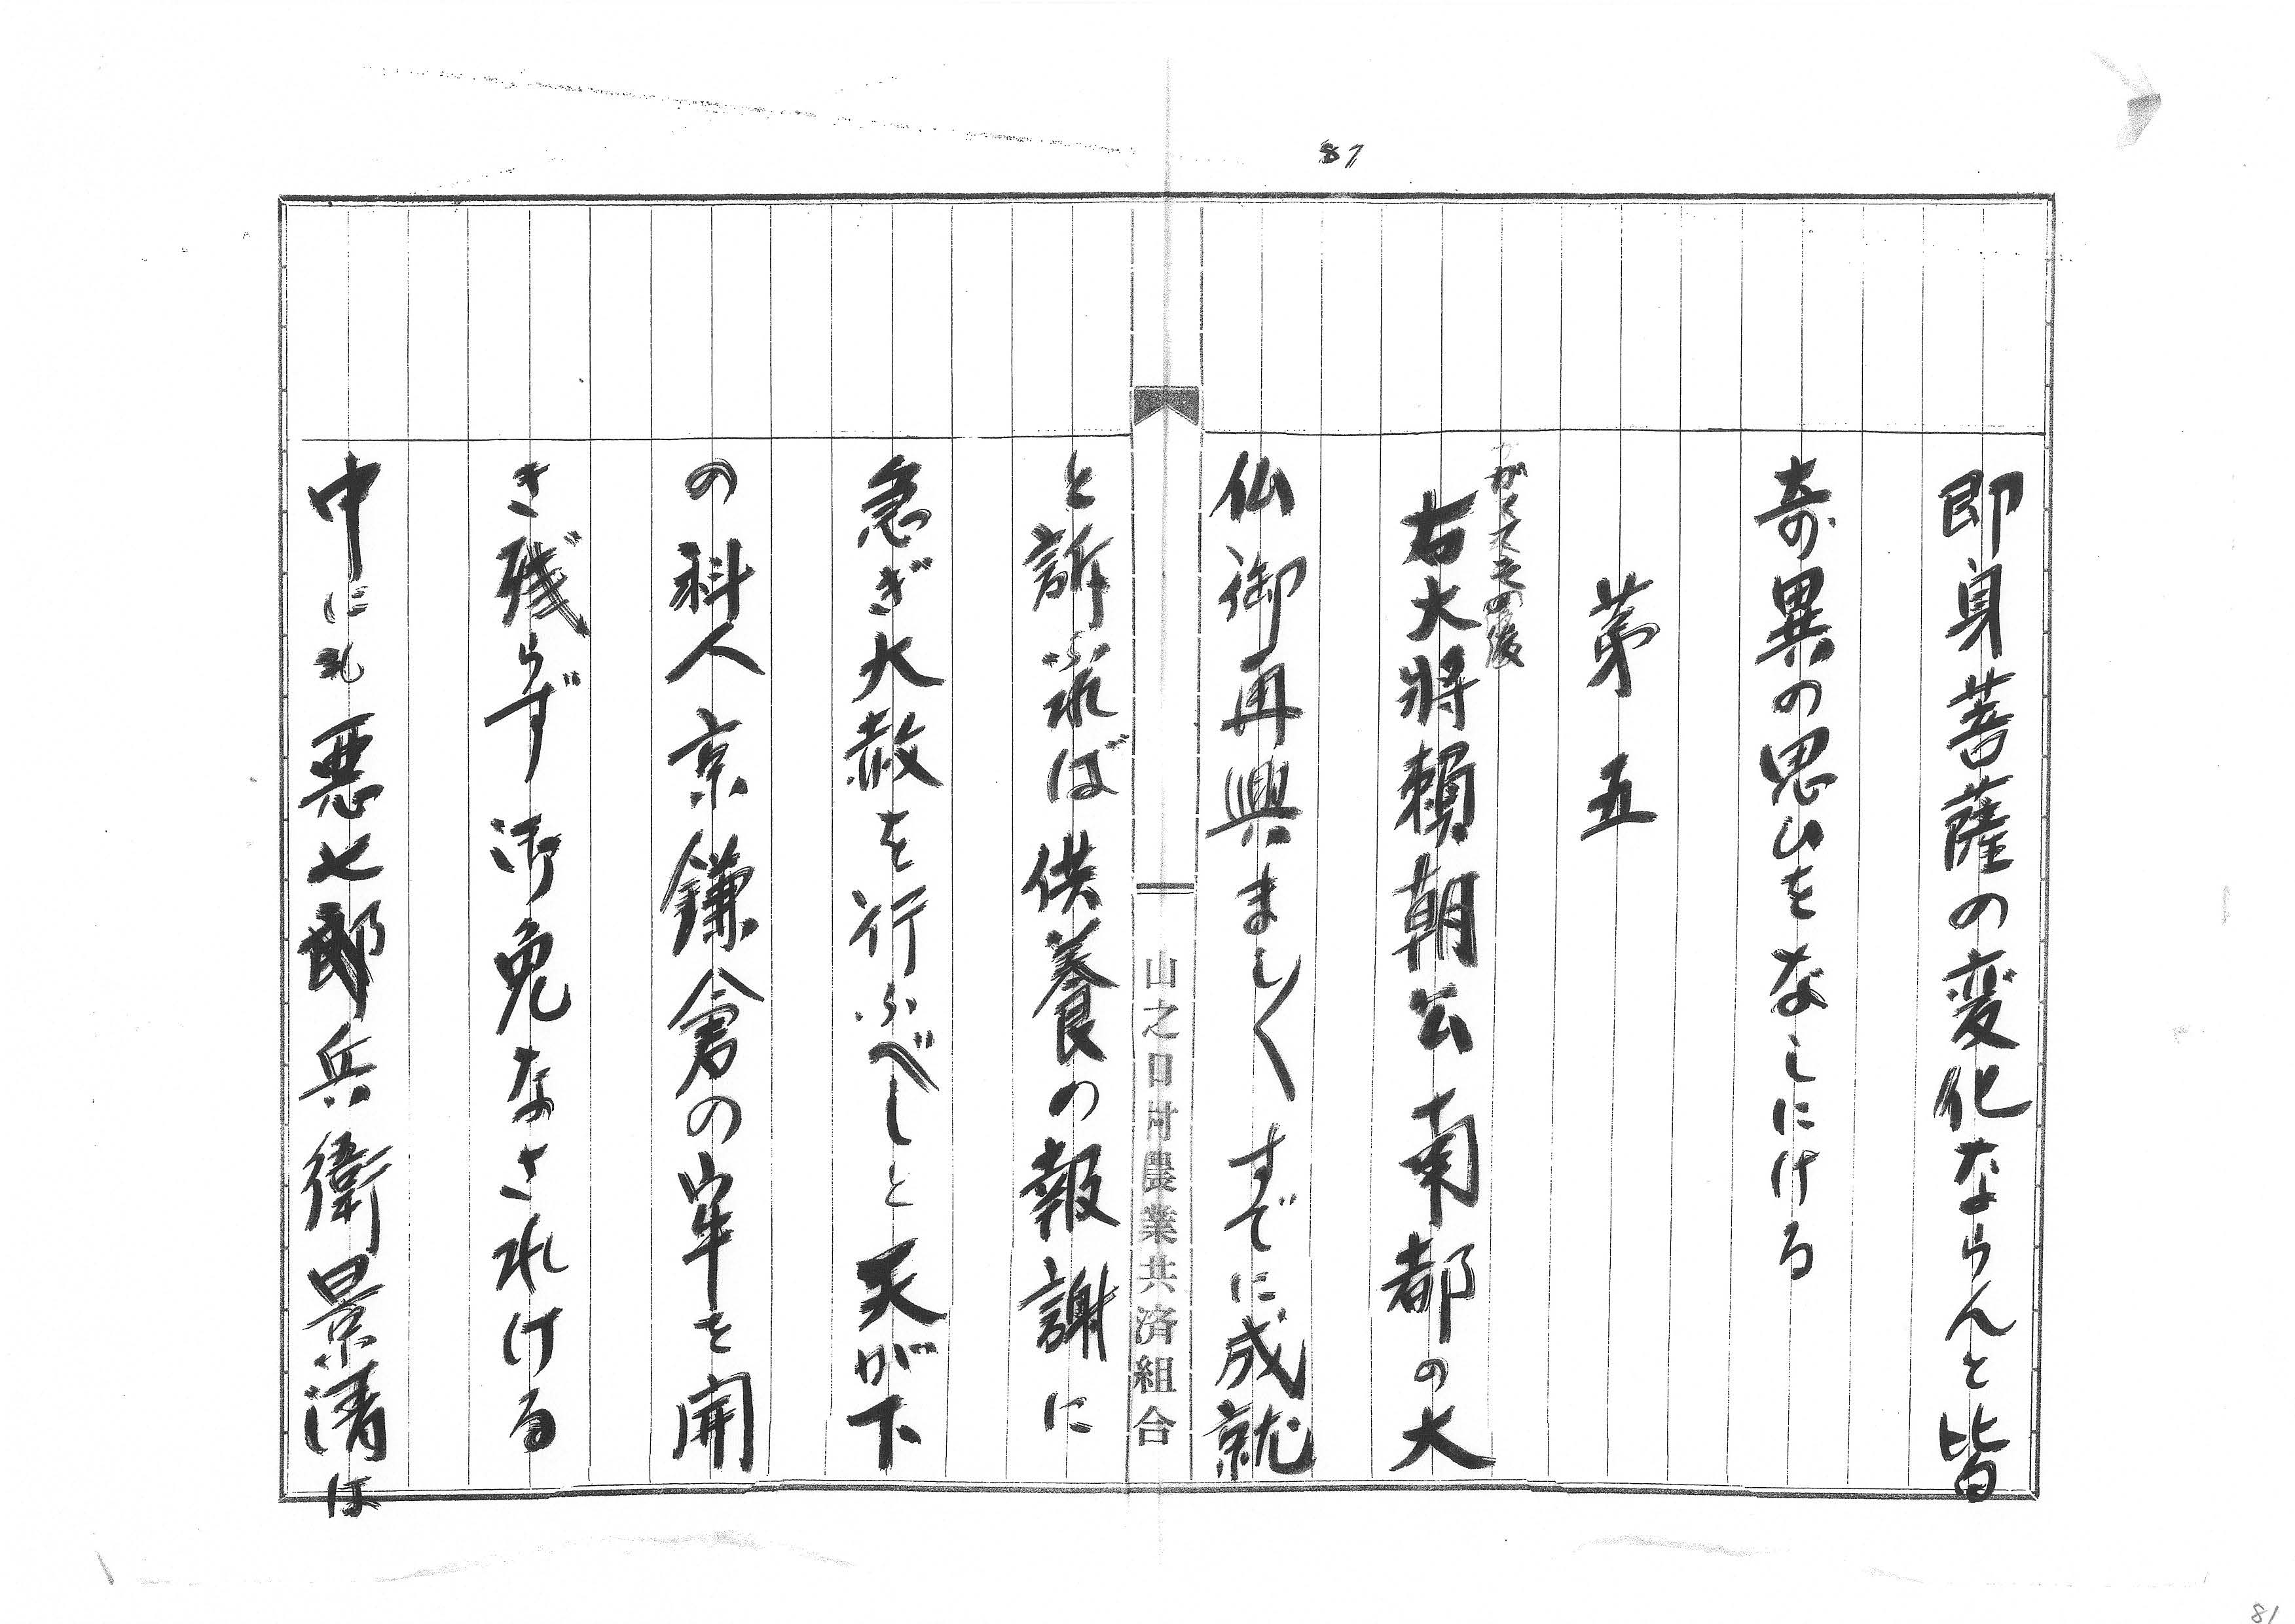 81
即身菩薩の変化ならんと皆
奇異の思ひをなしにける
第五
がくて其の後
右大将頼朝公南都の大
仏御再興まし〱すでに成就
と訴ふれば供養の報謝に
急ぎ大赦を行ふべしと天が下
の科人京鎌倉の牢を開
き残らず御免なされける
中にも悪七郎兵衛景清は
山之口村農業共済組合
81